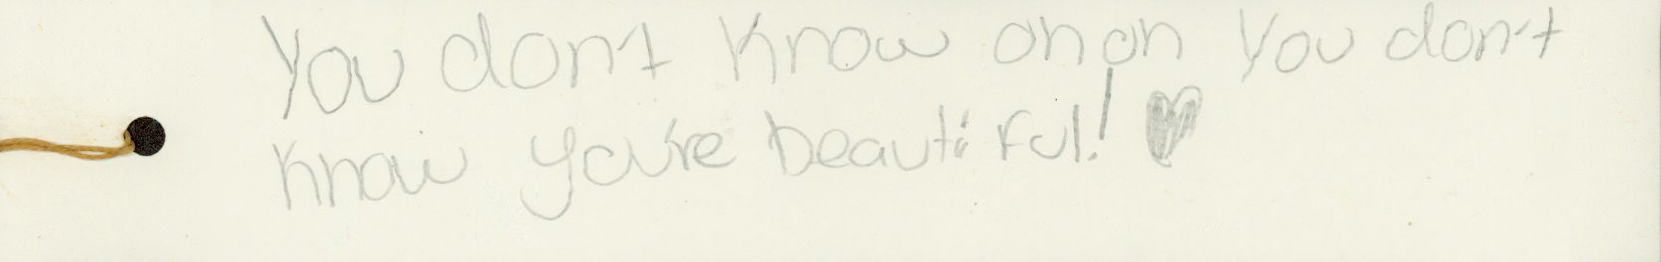 You don't know ohoh You don't
know you're beautiful! ♥